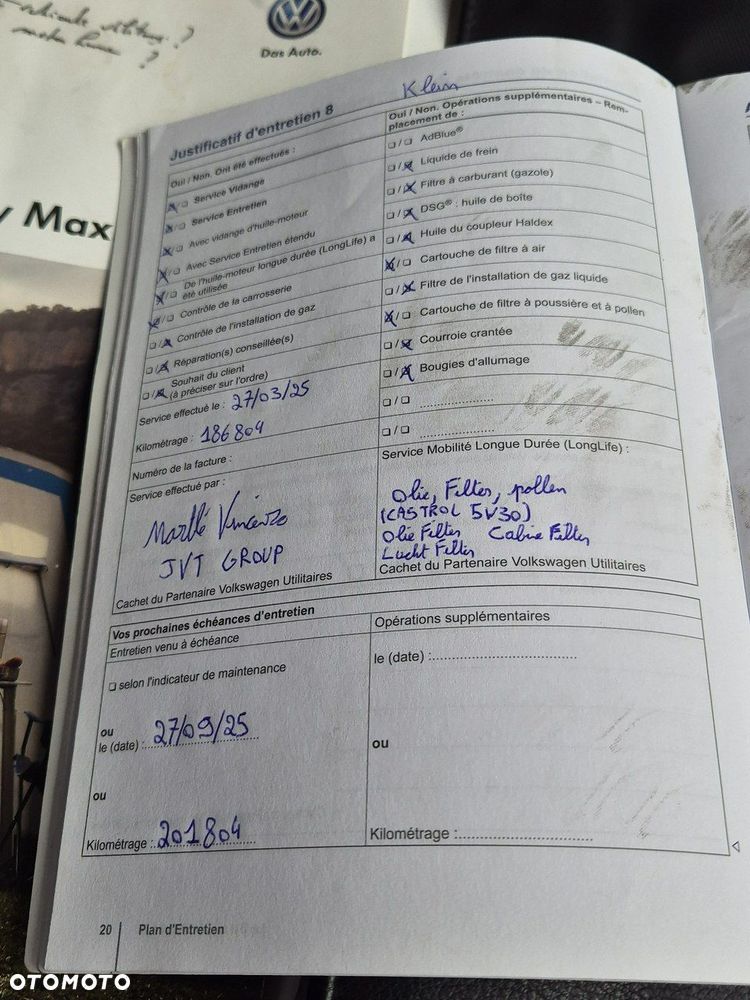 Das Auto.
y Max
Klein
Justificatif d'entretien 8
Oui / Non. Ont été effectués :
☒/❏ Service Vidange
☒/❏ Service Entretien
☒/❏ Avec vidange d'huile-moteur
☒/❏ Avec Service Entretien étendu
☒/❏ De l'huile-moteur longue durée (LongLife) a
été utilisée
☒/❏ Contrôle de la carrosserie
❏/☒ Contrôle de l'installation de gaz
❏/☒ Réparation(s) conseillée(s)
❏/☒ Souhait du client
(à préciser sur l'ordre)
Service effectué le : 27/03/25
Kilométrage : 186804
Numéro de la facture :
Service effectué par :
JVT GROUP
Cachet du Partenaire Volkswagen Utilitaires
Oui / Non. Opérations supplémentaires – Rem-
placement de :
❏/❏ AdBlue®
❏/☒ Liquide de frein
❏/☒ Filtre à carburant (gazole)
❏/☒ DSG® : huile de boîte
❏/☒ Huile du coupleur Haldex
☒/❏ Cartouche de filtre à air
❏/☒ Filtre de l'installation de gaz liquide
☒/❏ Cartouche de filtre à poussière et à pollen
❏/☒ Courroie crantée
❏/☒ Bougies d'allumage
❏/❏ ....................
❏/❏ ....................
Service Mobilité Longue Durée (LongLife) :
Olie, Filter, pollen
(CASTROL 5W30)
Olie Filter Cabine Filter
Lucht Filter
Cachet du Partenaire Volkswagen Utilitaires
Vos prochaines échéances d'entretien
Entretien venu à échéance
❏ selon l'indicateur de maintenance
ou
le (date) : 27/09/25
ou
Kilométrage : 201804
Opérations supplémentaires
le (date) :........................................
ou
Kilométrage :.....................................
20 Plan d'Entretien
OTOMOTO